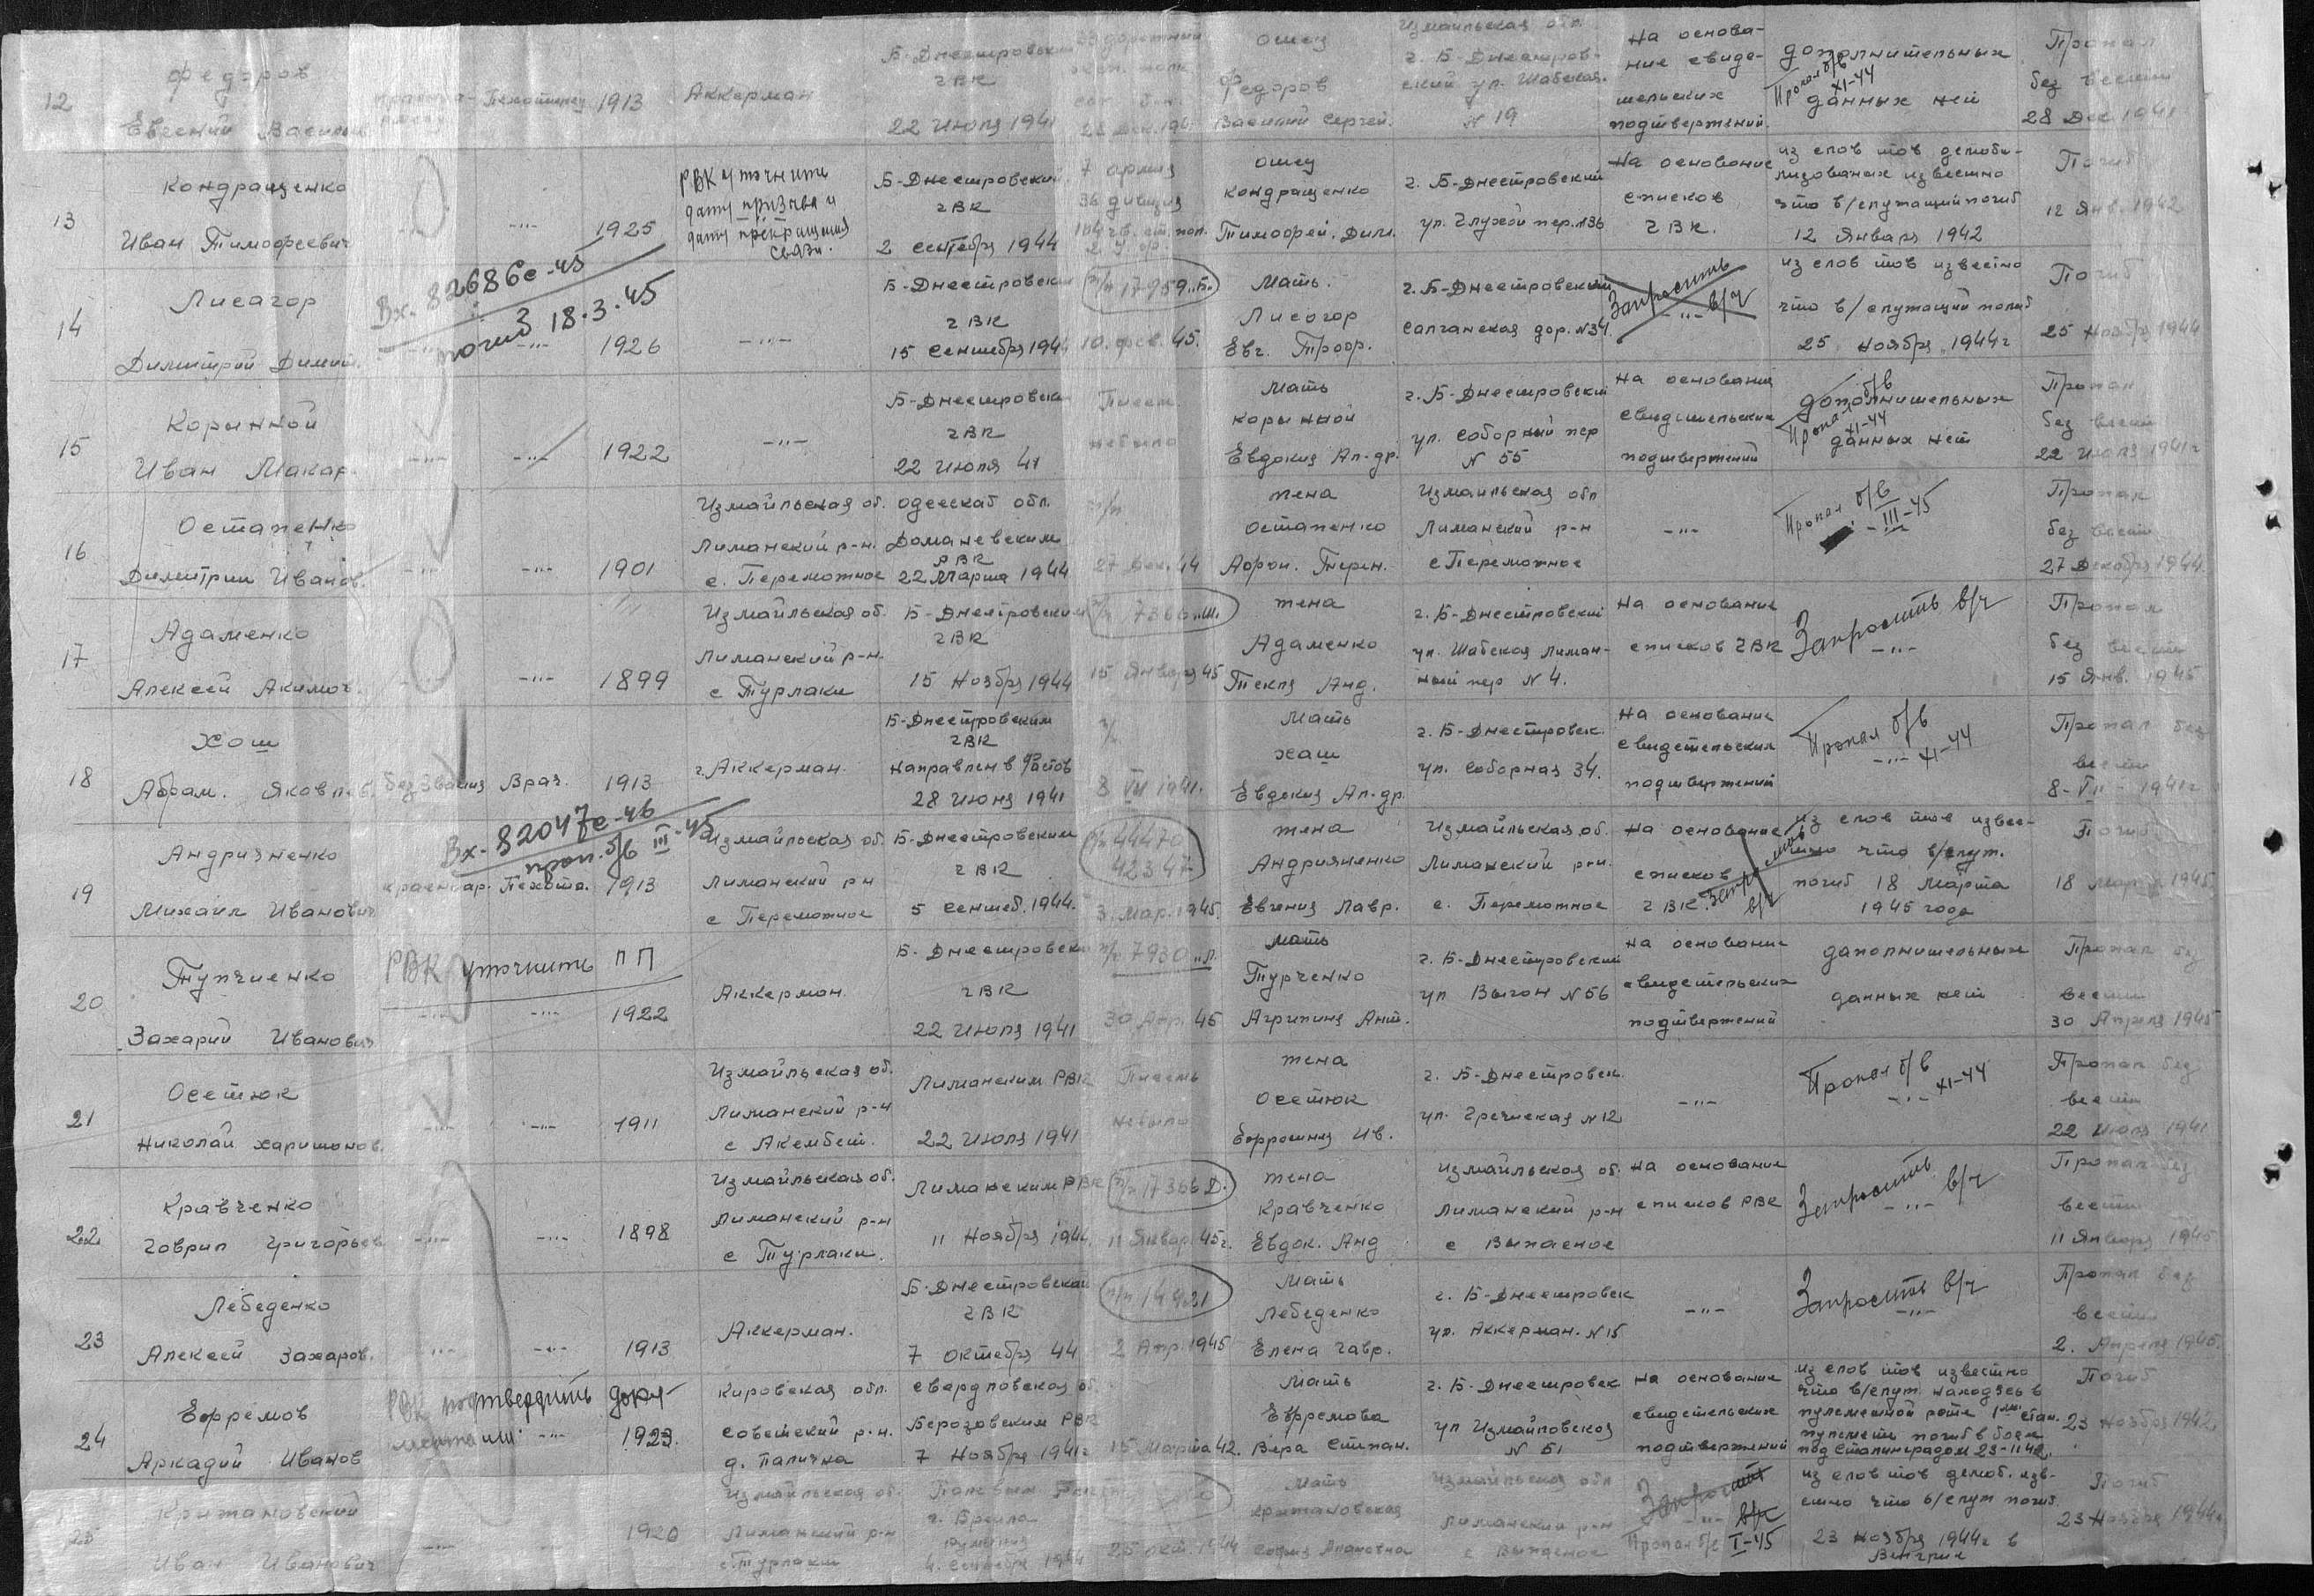 12
Федоров
Евгений Василь
Пехотинец
1913
Аккерман
Б-Днестровским
ГВК
22 Июля 1941
отец
Федоров
Василий Сергей.
Измаильская обл.
г. Б-Днестров-
ский ул. Шабская.
N 19
На основа-
ние свиде-
тельских
подтвержений.
дополнительных
Пропал б/в
XI-44
данных нет
Пропал
без вести
28 Дек 1941
13
Кондращенко
Иван Тимофеевич
-"-
1925
РВК уточнить
дату призыва и
дату прекращения
связи.
Б-Днестровский
ГВК
2 сентября 1944
7 армия
36 дивизия
104 гв. ст. пол.
отец
Кондращенко
Тимофей. Дим.
г. Б-Днестровский
ул. Глухой пер. N36
На основание
списков
ГВК.
из слов тов демоби-
лизованых известно
что в/служащий погиб
12 Января 1942
Погиб
12 Янв. 1942
14
Лисагор
Димитрий Димит.
Вх. 82686с-45
погиб 18.3.45
-"-
1926
-"-
Б-Днестровским
ГВК
15 Сентября 1944
п/п 17959 "Б"
10. фев. 45.
Мать.
Лисогор
Евг. Проф.
г. Б-Днестровский
Салганская дор. N34.
Запросить
-"- в/ч
из слов тов известно
что в/служащий погиб
25 ноября 1944г
Погиб
25 Ноябр 1944
15
Корынной
Иван Макар.
-"-
-"-
1922
-"-
Б-Днестровским
ГВК
22 Июля 41
Писем
небыло
Мать
Корынной
Евдокия Ал-др.
г. Б-Днестровский
ул. Соборный пер
N 55
На основания
свидетельских
подтвержений
дополнительных
Пропал б/в
XI-44
данных нет
Пропал
без вести
22 Июля 1941г
16
Остапенко
Димитрии Иванов.
-"-
-"-
1901
Измайльская об.
Лиманский р-н.
с. Переможное
Одесской обл.
Доманевским
РВК
22 Марта 1944
п/п
27 Дек. 44
жена
Остапенко
Афон. Терен.
Измаильская обл
Лиманский р-н
с Переможное
-"-
Пропал б/в
-"- III-45
Пропал
без вести
27 Декабря 1944.
17
Адаменко
Алексей Акимов.
-"-
-"-
1899
Измайльская об.
Лиманский р-н.
с Турлаки
Б-Днестровским
ГВК
15 Ноября 1944
п/п 7366 "Ш"
15 Января 45
жена
Адаменко
Текля Анд.
г. Б-Днестровский
ул. Шабская Лиман-
ный пер N 4.
На основание
списков ГВК
Запросить в/ч
-"-
Пропал
без вести
15 Янв. 1945
18
Хош
Абрам. Яковлев.
без звания
Враз.
1913
г. Аккерман.
Б-Днестровским
ГВК
направлен в Фастов
28 июня 1941
8 VII 1941.
Мать
Хаш
Евдокия Ал-др.
г. Б-Днестровск.
ул. Соборная 34.
На основание
свидетельских
подтвержений
Пропал б/в
-"- XI-44
Пропал без
вести
8-VII-1941г
19
Андрияненко
Михаил Иванович
Вх-82047с-46
проп. б/в III-45
Красноар.
Пехота.
1913
Измайльская об.
Лиманский р-н
с Переможное
Б-Днестровским
ГВК
5 Сентяб. 1944.
п/п 44470
42347
3. Мар. 1945.
жена
Андрияненко
Евгения Лавр.
Измайльская об.
Лиманский р-н.
с. Переможное
На основание
списков
ГВК.
Запросить
в/ч
из слов тов извес-
тно что в/служ.
погиб 18 Марта
1945 года
Погиб
18 Мар. 1945.
20
Тупчиенко
Захарий Иванович
РВК уточнить ПП
-"-
-"-
1922
Аккерман.
Б-Днестровским
ГВК
22 Июля 1941
п/п 7930 "Л"
30 Апр. 45
мать
Турченко
Агрипина Ант.
г. Б-Днестровский
ул Выгон N 56
На основание
свидетельских
подтвержений
дополнительных
данных нет
Пропал без
вести
30 Апреля 1945
21
Осетюк
Николай Харитонов.
-"-
-"-
1911
Измайльская об.
Лиманский р-н
с Акембет.
Лиманским РВК
22 Июля 1941
Писем
небыло
жена
Осетюк
Ефросиния Ив.
г. Б-Днестровск.
ул. Греческая N12
-"-
Пропал б/в
-"- XI-44
Пропал без
вести
22 Июля 1941
22
Кравченко
Говрил Григорьев
-"-
-"-
1898
Измайльская об.
Лиманский р-н
с Турлаки.
Лиманским РВК
11 Ноября 1944.
п/п 17366 Д.
11 Январ. 45г.
жена
Кравченко
Евдок. Анд
Измайльская об.
Лиманский р-н
с Выпасное
На основание
списков РВК
Запросить
-"- в/ч
Пропал без
вести
11 Января 1945
23
Лебеденко
Алексей Захаров.
-"-
-"-
1913
Аккерман.
Б-Днестровским
ГВК
7 Октября 44
п/п 14921
2 Апр. 1945
Мать
Лебеденко
Елена Гавр.
г. Б-Днестровск
ул. Аккерман. N15
-"-
Запросить в/ч
-"-
Пропал без
вести
2. Апреля 1945.
24
Ефремов
Аркадий Иванов
РВК подтвердить доку-
ментами.
-"-
1923.
Кировская обл.
Советский р-н.
д. Паличка
Свердловской об.
Берозовским РВК
7 Ноября 1941г
15 Марта 42.
Мать
Ефремова
Вера Степан.
г. Б-Днестровск
ул Измайловская
N 51
На основание
свидетельских
подтвержений
из слов тов известно
что в/служ находясь в
пулеметной роте 1ым стан.
пулемета погиб в боях
под Сталинградом 23-11-42.
Погиб
23 Ноября 1942.
25
Крижановский
Иван Иванович
-"-
1920
Измайльская об.
Лиманский р-н
с Турлаки
Полевым РВК
г. Броила
Румыния
4. Сентября 1944
25 окт 1944
Мать
Крижановская
София Ипановна
Измайльская обл
Лиманский р-н
с Выпасное
Запросить
-"- в/ч
Пропал б/в I-45
из слов тов демоб. изв-
естно что в/служ погиб
23 Ноября 1944г в
Венгрии
Погиб
23 Ноября 1944г